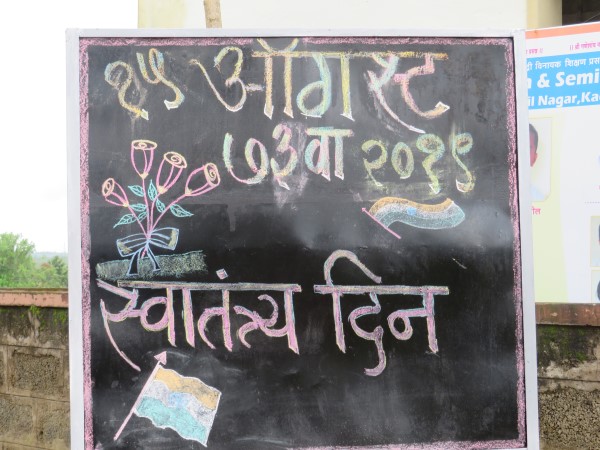 १५ ऑगस्ट
७३वा २०१९
स्वातंत्र्य दिन
विनायक शिक्षण
& Semi
Nagar,